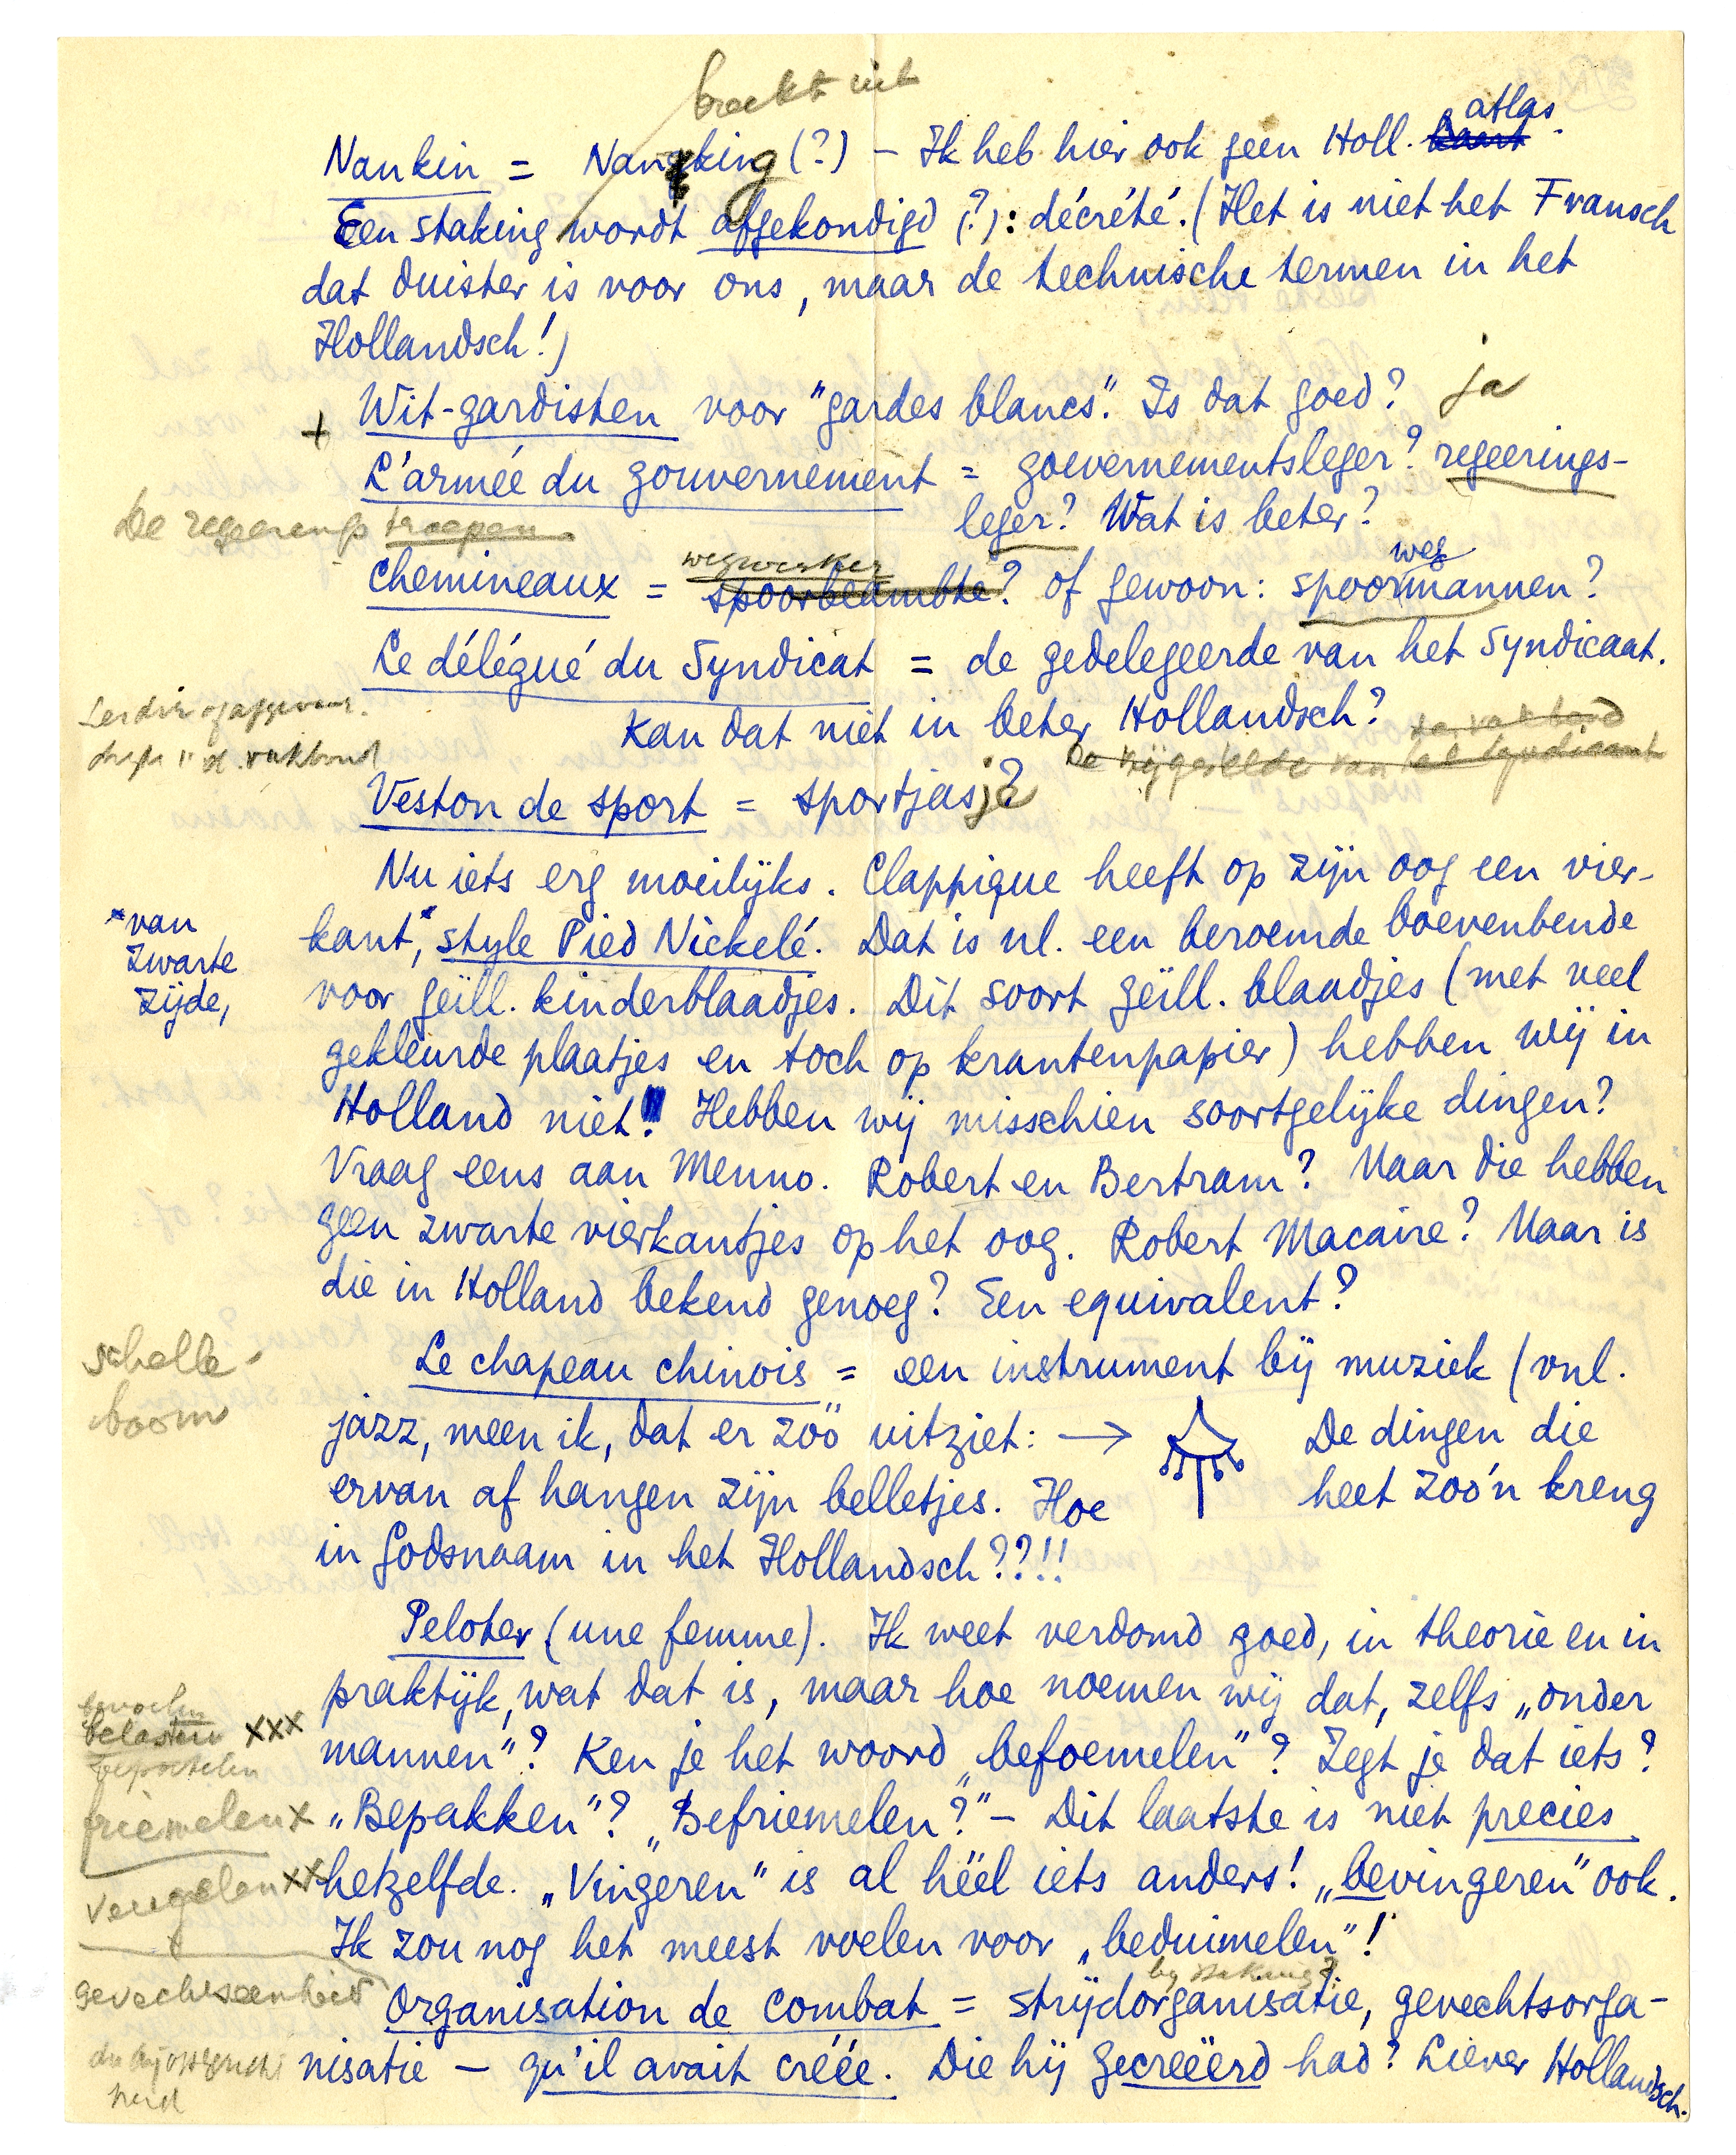 breekt uit
atlas.
Nankin = Nanking (?) – Ik heb hier ook geen Holl. kaart
Een staking wordt afgekondigd (?): décrété. (Het is niet het Fransch
dat duister is voor ons, maar de technische termen in het
Hollandsch!)
+ Wit-gardisten voor "gardes blancs". Is dat goed? ja
L'armée du gouvernement = goevernementsleger? regeerings-
De regeerings troepen
leger? Wat is beter?
wegwerker
weg
chemineaux = spoorbeambte? of gewoon: spoormannen?
Le délégué du Syndicat = de gedelegeerde van het Syndicaat.
Kan dat niet in beter Hollandsch?
de vakbond
De vrijgestelde van het syndicaat
Veston de sport = sportjasje?
Nu iets erg moeilijks. Clappique heeft op zijn oog een vier-
kant,* style Pied Nickelé. Dat is nl. een beroemde boevenbende
*van
zwarte
zijde,
voor geïll. kinderblaadjes. Dit soort geïll. blaadjes (met veel
gekleurde plaatjes en toch op krantenpapier) hebben wij in
Holland niet! Hebben wij misschien soortgelijke dingen?
Vraag eens aan Menno. Robert en Bertram? Maar die hebben
geen zwarte vierkantjes op het oog. Robert Macaire? Maar is
die in Holland bekend genoeg? Een equivalent?
schelle-
boom
Le chapeau chinois = een instrument bij muziek (vnl.
jazz, meen ik, dat er zóó uitziet: → De dingen die
ervan af hangen zijn belletjes. Hoe heet zoo'n kreng
in Godsnaam in het Hollandsch??!!
Peloter (une femme). Ik weet verdomd goed, in theorie en in
praktijk, wat dat is, maar hoe noemen wij dat, zelfs „onder
betasten xxx
mannen"? Ken je het woord „befoemelen"? Zegt je dat iets?
friemelen x
„Bepakken"? „Befriemelen?" – Dit laatste is niet precies
hetzelfde. „Vingeren" is al héél iets anders! „bevingeren" ook.
Ik zou nog het meest voelen voor „beduimelen"!
gevechtseenheid
by staking?
Organisation de combat = strijdorganisatie, gevechtsorga-
nisatie – qu'il avait créée. Die hij gecreëerd had? Liever Hollandsch.